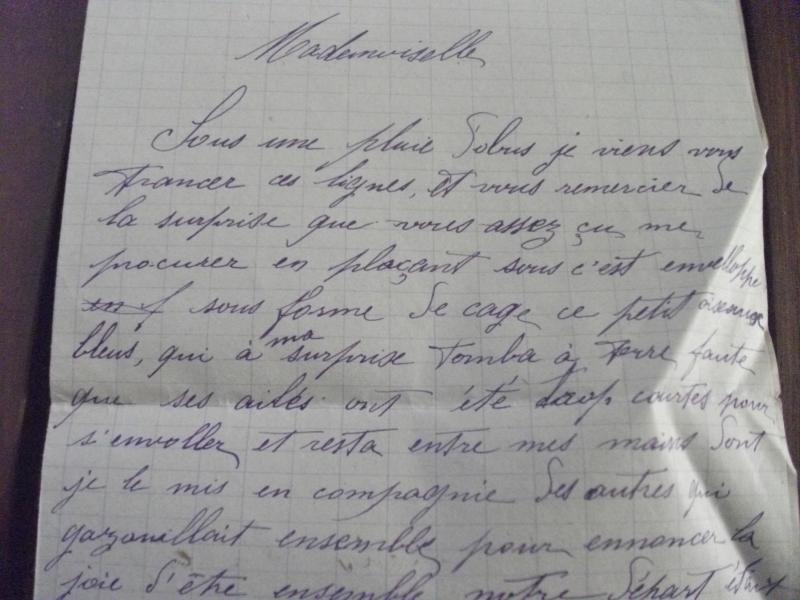 Mademoiselle
Sous une pluie d'obus je viens vous
trancer ces lignes, et vous remercier de
la surprise que vous assez çu me
procurer en plaçant sous c'est envelloppe
en f sous forme de cage ce petit
bleus, qui à ma surprise tomba à terre faute
que ses ailes ont été trop courtes pour
s'envoller et resta entre mes mains dont
je le mis en compagnie des autres qui
gazouillait ensemble pour ennoncer la
joie d'être ensemble notre départ était